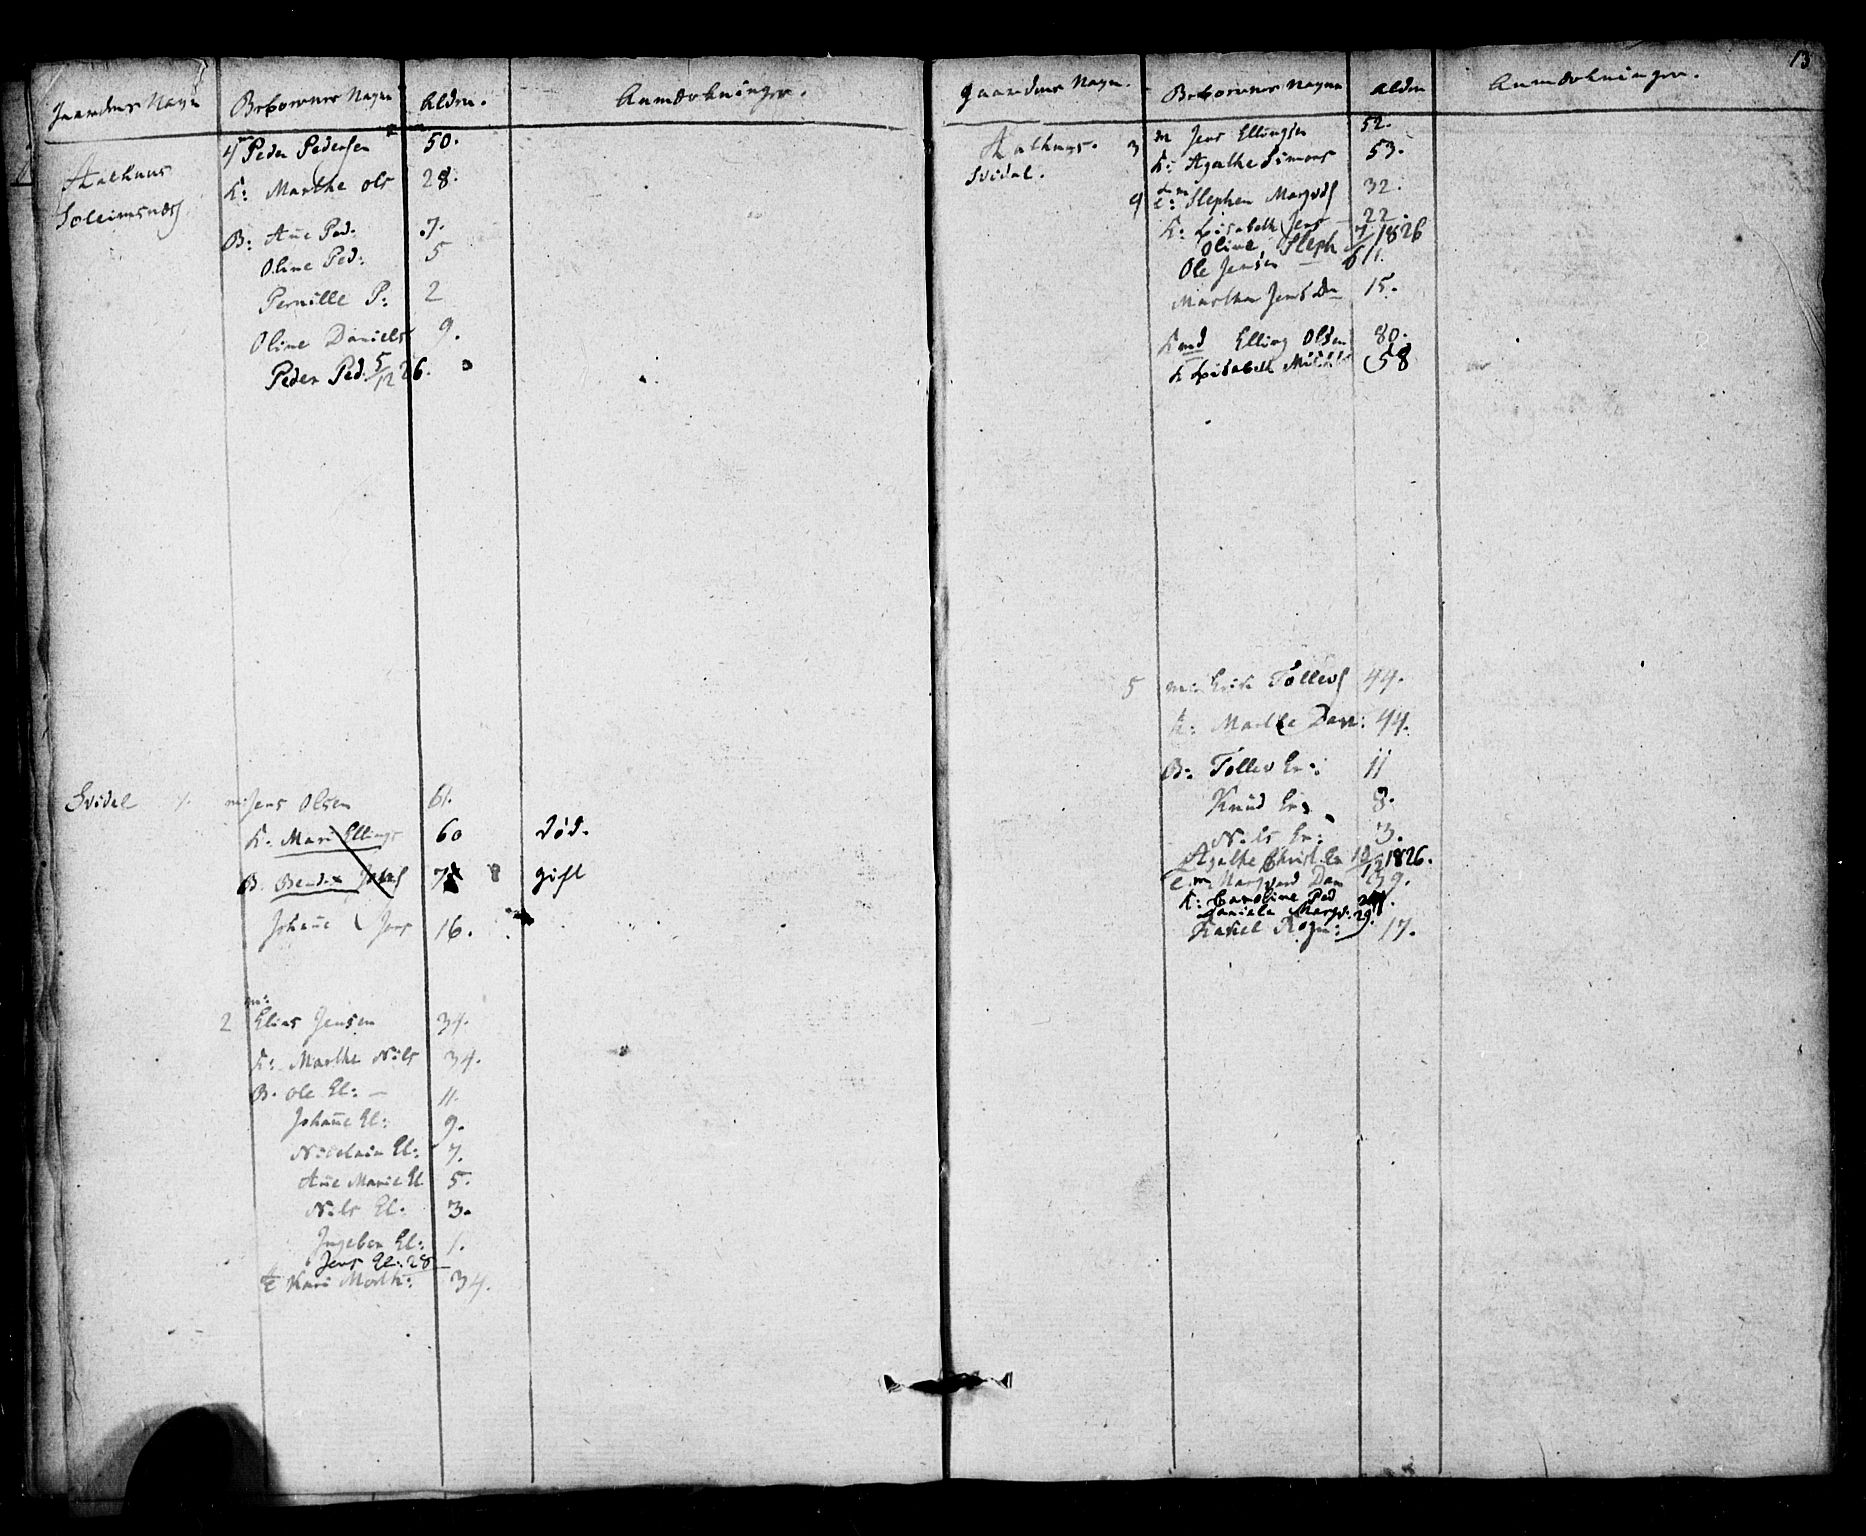 Gaardens Nagn Beboernes Nagne Alder. Anmærkninger.
Aalhuus 4 Peder Pedersen 50.
Soleimsnæs K: Marthe Ols 28.
B: Añe Ped. 7.
Oline Ped: 5
Pernille P: 2
Oline Daniels 9.
Peder Ped. 5/12 26.
Svidal 1. m: Jens Olsen 61.
K. Mari Ellings 60 død.
B. Bendix Jens gift
Johañe Jens 16.
m:
2 Elias Jensen 34.
K: Marthe Nils 34.
B. Ole El: 11.
Johañe El: 9.
Nicolain El: 7.
Añe Marie El 5.
Nils El. 3.
Ingebor El: 1.
Jens El: 28
Kari Morth: 34.
13
Gaardens Nagn. Beboernes Nagne Alder Anmærkninger.
Aalhuus. 3 m Jens Ellingsen 52.
Svidal. K: Agathe Simons 53.
4 Stephen Margvds 32.
K: Lisabeth Jens 22.
Oline Steph 7/6 1826
Ole Jensen 11.
Martha Jens Dr 15.
Kmd Elling Olsen 80.
K Lisabeth 58
5 m: Erik Tollevs 44.
K: Marthe Dan: 44.
B: Tollev Er: 11
Knud Er 8.
Nils Er: 3.
Agathe Christ. Er 10/12 1826.
e m Margvard Dan 29.
K: Caroline Ped
Daniele Margv: 29.
Rakel Rogn: 17.